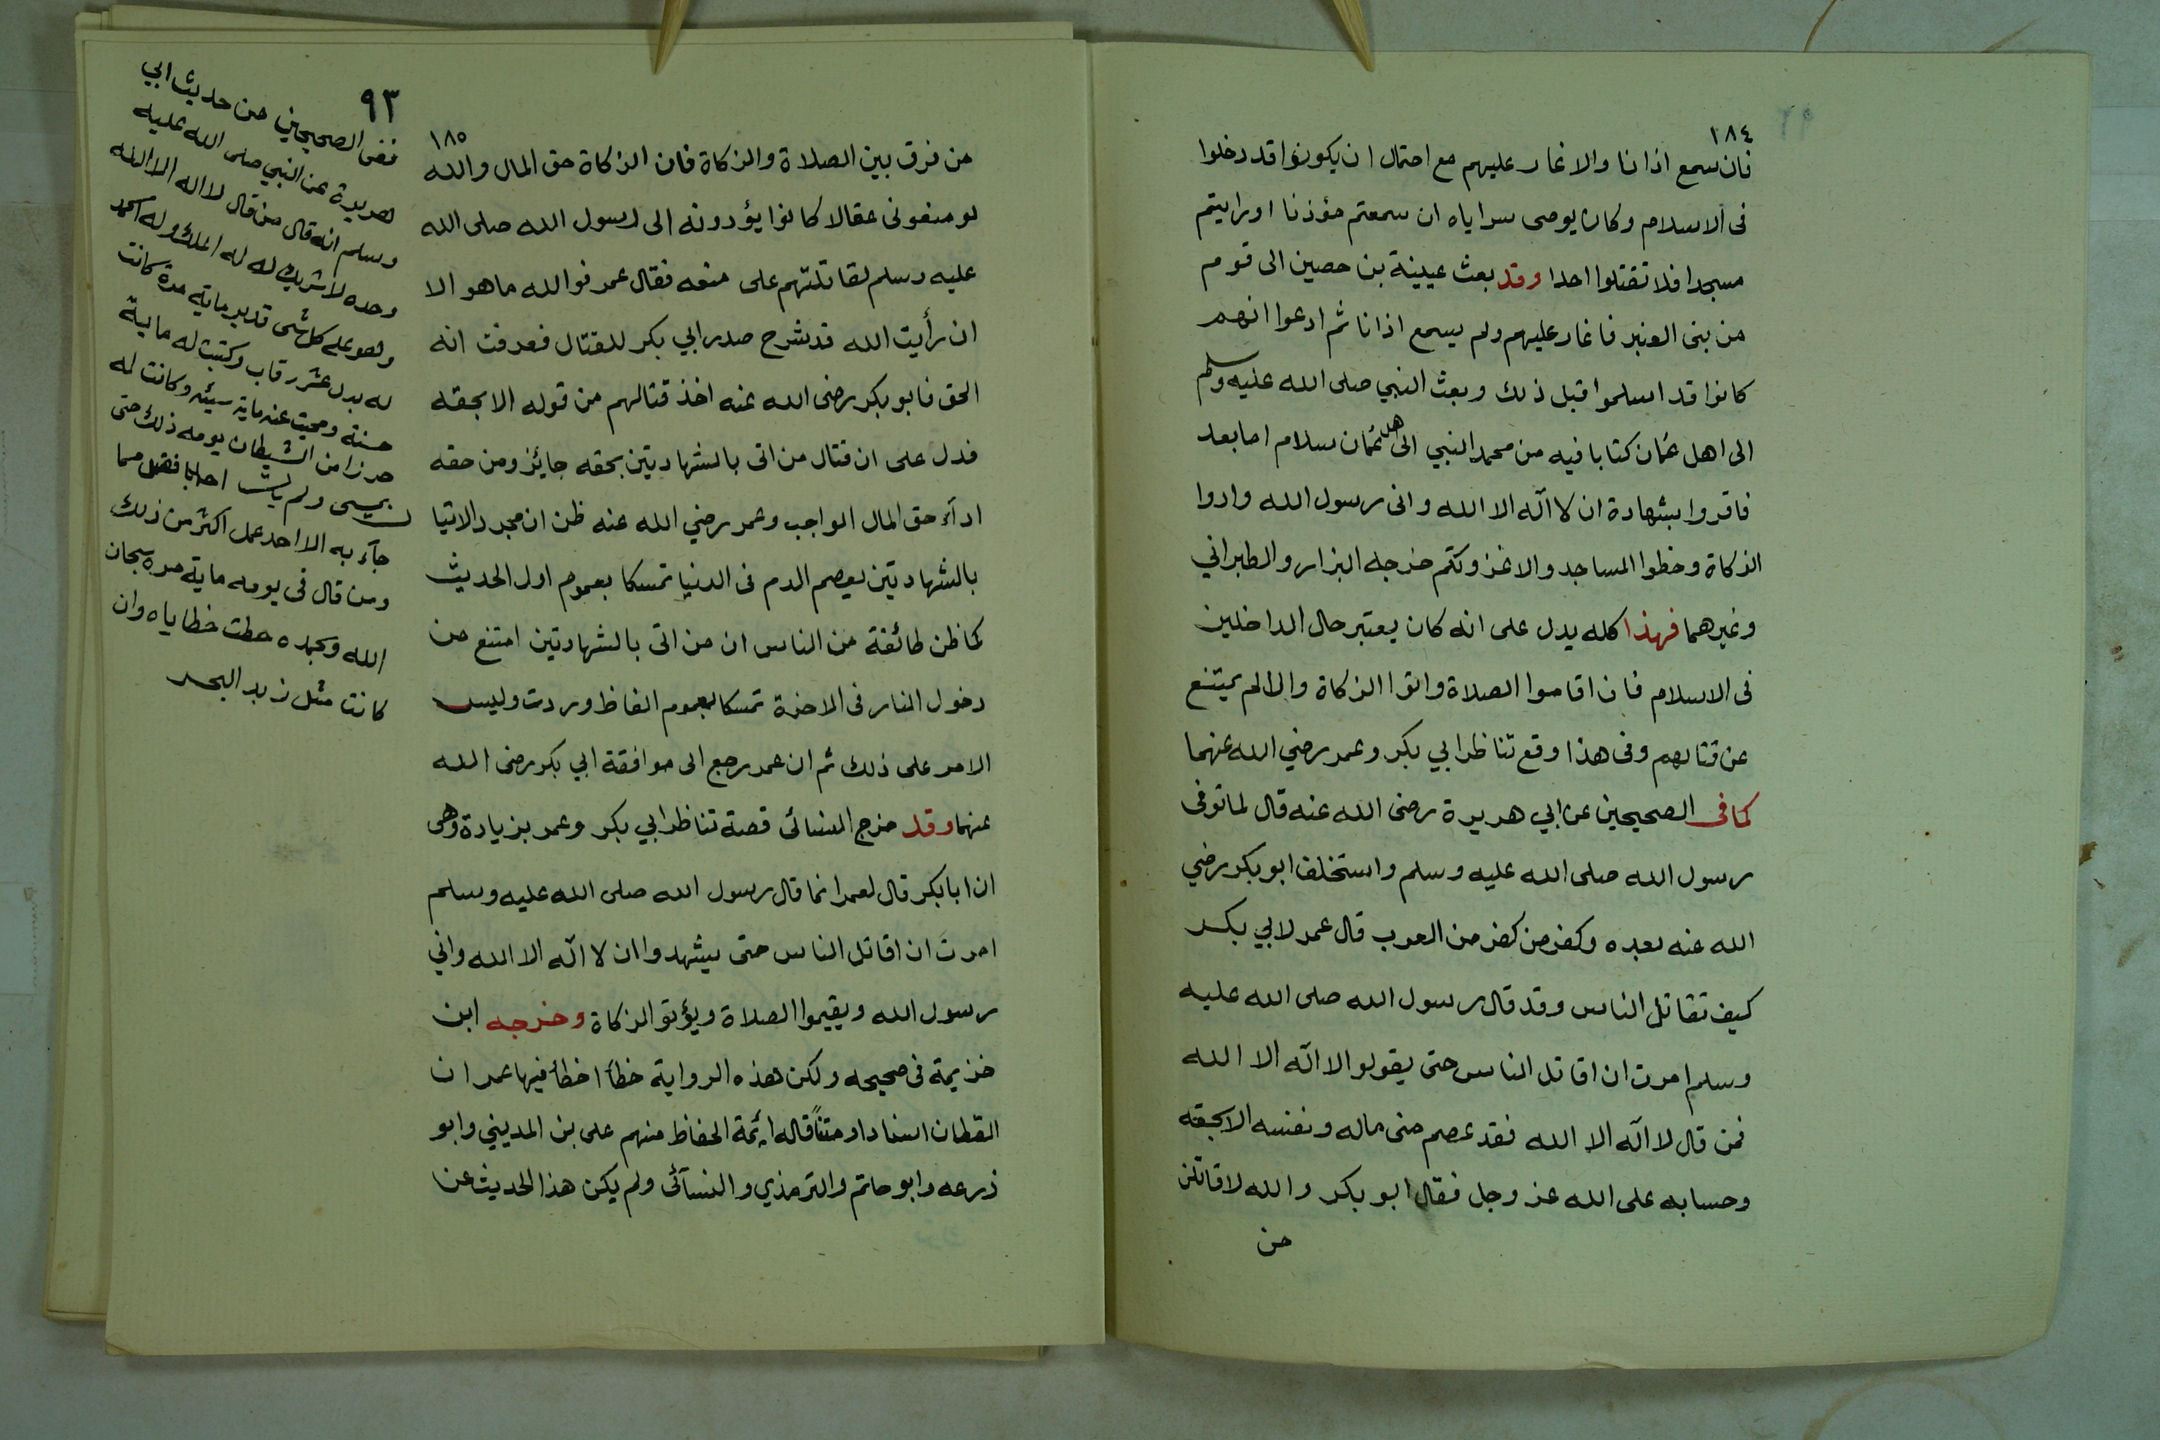 ١٨٤
فان سمع اذانا والا غار عليهم مع احتمال ان يكونوا قد دخلوا
فى الاسلام وكان يوصى سراياه ان سمعتم مؤذنا او رايتم
مسجدا فلا تقتلوا احدا وقد بعث عيينة بن حصين الى قوم
من بنى العنبر فاغار عليهم ولم يسمع اذانا ثم ادعوا انهم
كانوا قد اسلموا قبل ذلك وبعث النبي صلى الله عليه وسلم
الى اهل عُمان كتابا فيه من محمد النبي الى اهل عُمان سلام اما بعد
فاقروا بشهادة ان لا اله الا الله وانى رسول الله وادوا
الزكاة وخطوا المساجد والا غزوتكم خرجه البزار والطبراني
وغيرهما فهذا كله يدل على انه كان يعتبر حال الداخلين
فى الاسلام فان اقاموا الصلاة واتوا الزكاة والا لم يمتنع
عن قتالهم وفى هذا وقع تناظر ابي بكر وعمر رضي الله عنهما
كما فى الصحيحين عن ابي هريرة رضى الله عنه قال لما توفى
رسول الله صلى الله عليه وسلم واستخلف ابو بكر رضي
الله عنه بعده وكفر من كفر من العرب قال عمر لابي بكر
كيف تقاتل الناس وقد قال رسول الله صلى الله عليه
وسلم امرت ان اقاتل الناس حتى يقولو الا اله الا الله
فمن قال لا اله الا الله فقد عصم منى ماله ونفسه الا بحقه
وحسابه على الله عز وجل فقال ابو بكر والله لاقاتلن
من
٩٣
١٨٥
من فرق بين الصلاة والزكاة فان الزكاة حق المال والله
لو منعونى عقالا كانوا يؤدونه الى رسول الله صلى الله
عليه وسلم لقاتلتهم على منعه فقال عمر فوالله ماهو الا
ان رأيت الله قد شرح صدر ابي بكر للقتال فعرفت انه
الحق فابو بكر رضى الله عنه اخذ قتالهم من قوله الا بحقه
فدل على ان قتال من اتى بالشهادتين بحقه جايز ومن حقه
ادآء حق المال الواجب وعمر رضي الله عنه ظن ان مجرد الاتيا
بالشهادتين يعصم الدم فى الدنيا تمسكا بعموم اول الحديث
كما ظن طائفة من الناس ان من اتى بالشهادتين امتنع من
دخول النار فى الاخرة تمسكا بعموم الفاظ وردت وليس
الامر على ذلك ثم ان عمر رجع الى موافقة ابي بكر رضى الله
عنهما وقد خرج النسائى قصة تناظر ابي بكر وعمر بزيادة وهى
ان ابا بكر قال لعمر انما قال رسول الله صلى الله عليه وسلم
امرت ان اقاتل الناس حتى يشهدوا ان لا اله الا الله واني
رسول الله ويقيموا الصلاة ويؤتو الزكاة وخرجه ابن
خزيمة فى صحيحه ولكن هذه الرواية خطأ اخطأ فيها عمران
القطان اسنادا ومتنًا قاله ائمة الحفاظ منهم على بن المديني وابو
زرعه وابو حاتم والترمذي والنسآئى ولم يكن هذا الحديث عن
ففى الصحيحين من حديث ابي
هريرة عن النبي صلى الله عليه
وسلم انه قال من قال لا اله الا الله
وحده لا شريك له له الملك وله الحمد
وهو على كل شى قدير ماية مرة كانت
له بدل عشر رقاب وكتبت له ماية
حسنة ومحيت عنه ماية سيئه وكانت له
حرزا من الشيطان يومه ذلك حتى
يمسى ولم يات احد بافضل مما
جآء به الا احد عمل اكثر من ذلك
ومن قال فى يومه ماية مرة سبحان
الله وبحمده حطت خطاياه وان
كانت مثل زبد البحر